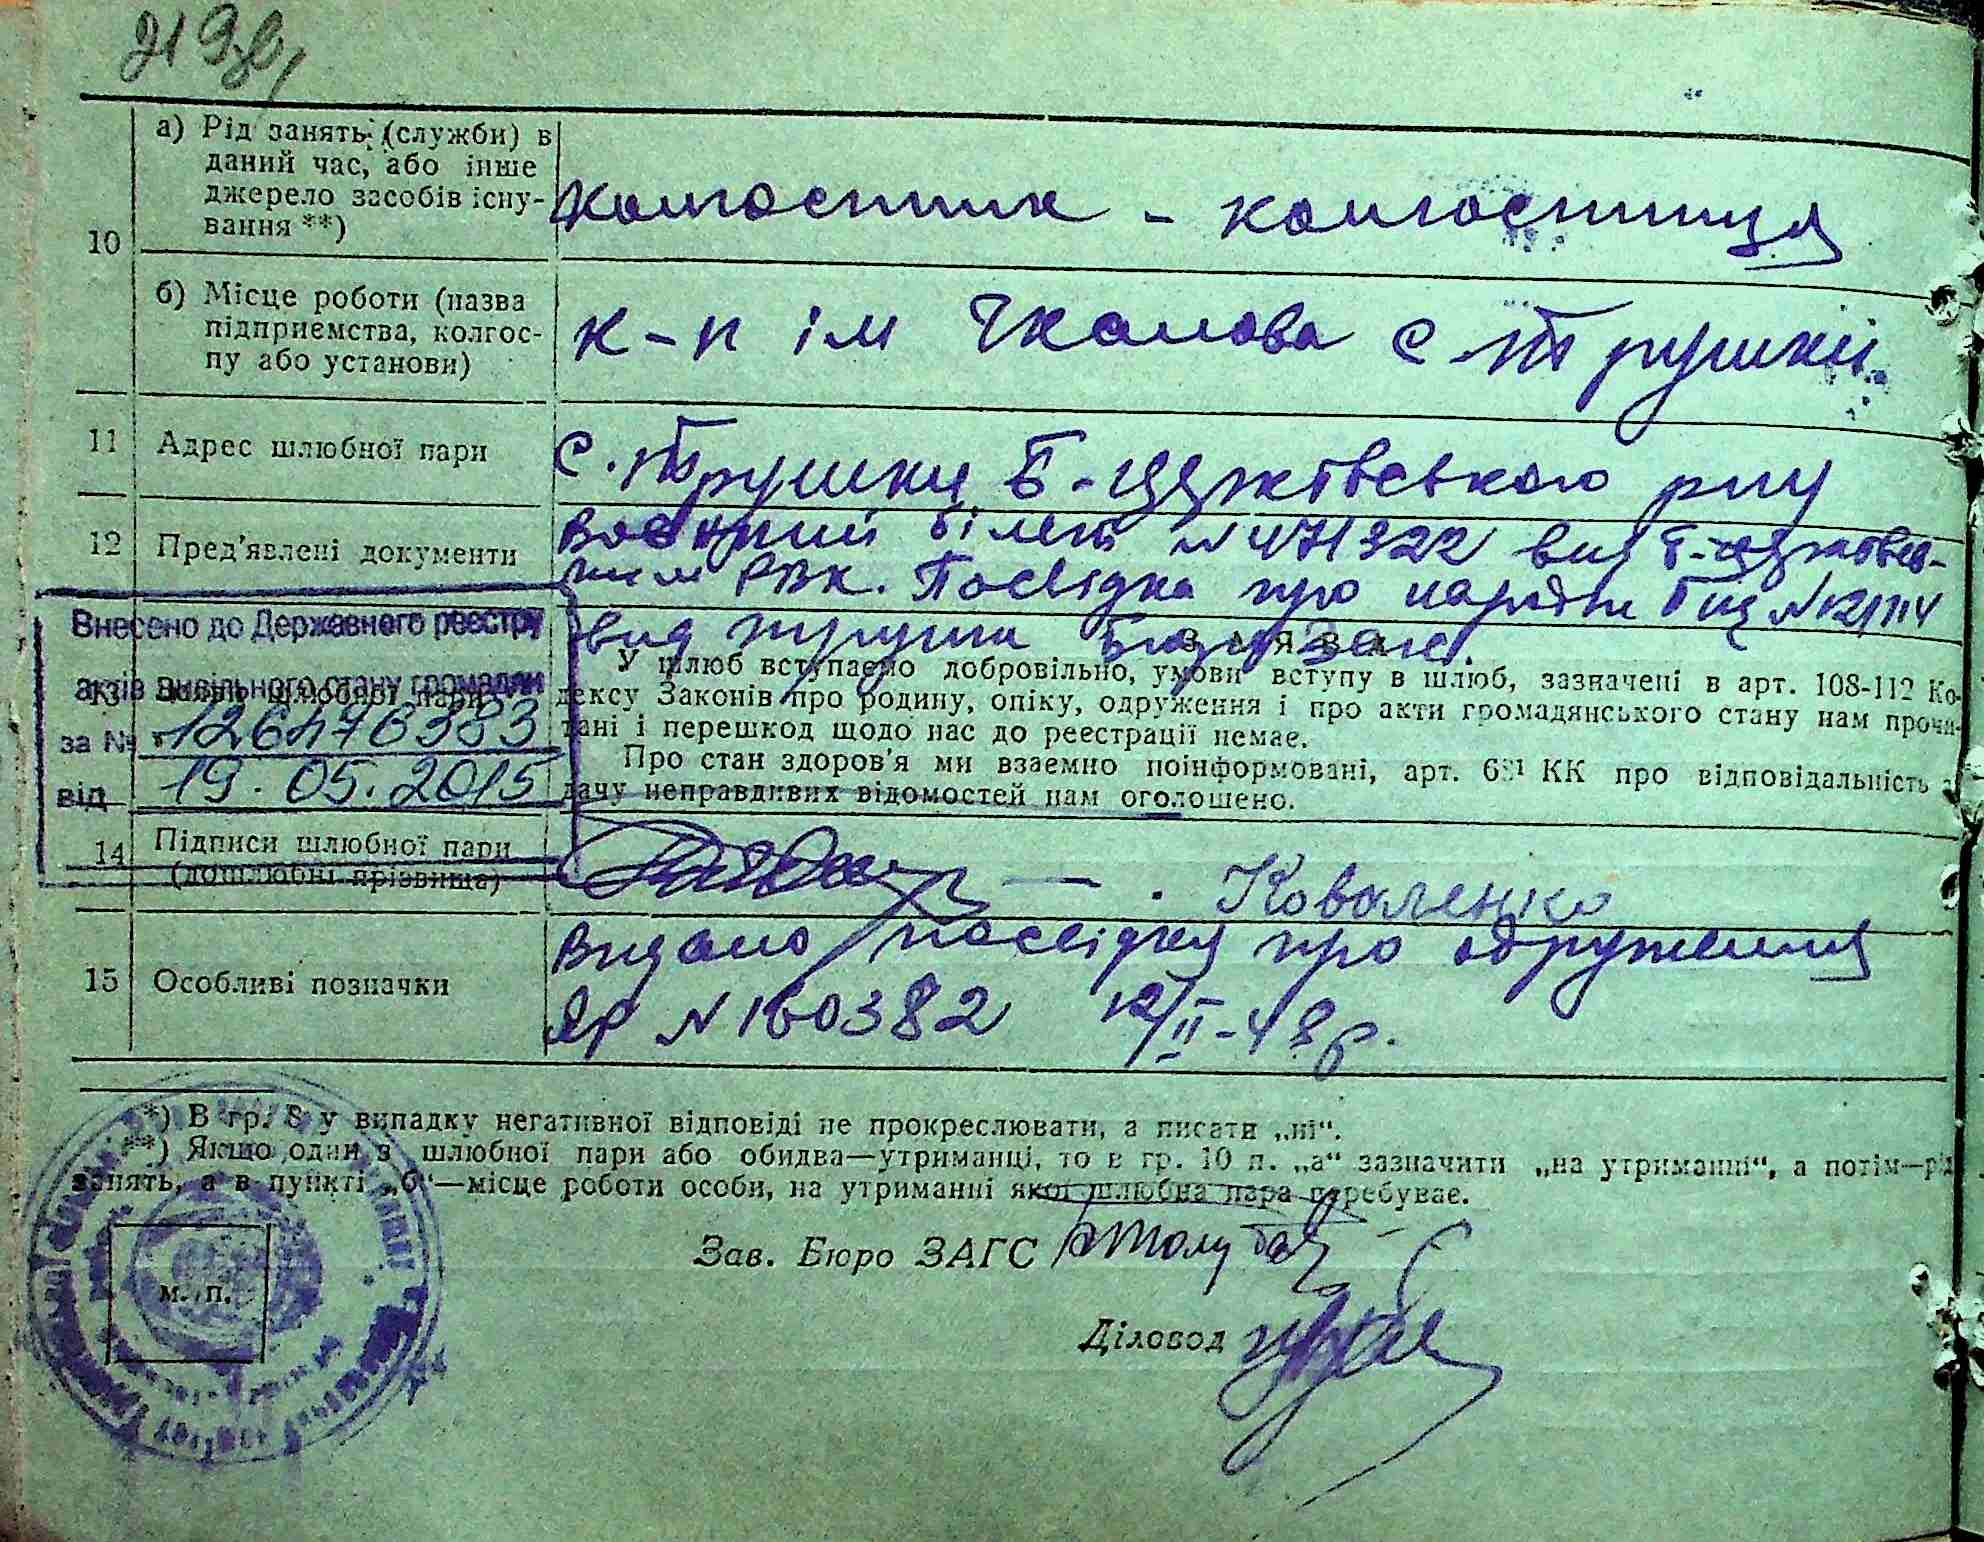 10
а) Рід занять (служби) в
даний час, або інше
джерело засобів існу-
вання **)
колгоспник - колгоспниця
б) Місце роботи (назва
підприємства, колгос-
пу або установи)
к-п ім Чкалова с. Трушки
11 Адрес шлюбної пари
с. Трушки Б-Церквського р-ну
12 Пред'явлені документи
Воєнний білет № 471322 вид Б-церквсь-
ким РВК. Посвідка про
вид
Внесено до Державного реєстру
актів цивільного стану громадян
за №
від 19.05.2015
13
ЗАЯВА
У шлюб вступаємо добровільно, умови вступу в шлюб, зазначені в арт. 108-112 Ко-
дексу Законів про родину, опіку, одруження і про акти громадянського стану нам прочи-
тані і перешкод щодо нас до реєстрації немає.
Про стан здоров'я ми взаємно поінформовані, арт. КК про відповідальність за
дачу неправдивих відомостей нам оголошено.
14 Підписи шлюбної пари
(дошлюбні прізвища)
Коваленко
15 Особливі позначки
Видано посвідку про одруження
ЯР № 160382 12/II-48 р.
*) В гр. 8 у випадку негативної відповіді не прокреслювати, а писати „ні“.
**) Якщо один з шлюбної пари або обидва—утриманці, то в гр. 10 п. „а“ зазначити „на утриманні“, а потім—рід
занять, а в пункті „б“—місце роботи особи, на утриманні якої шлюбна пара перебуває.
Зав. Бюро ЗАГС
м. п.
Діловод